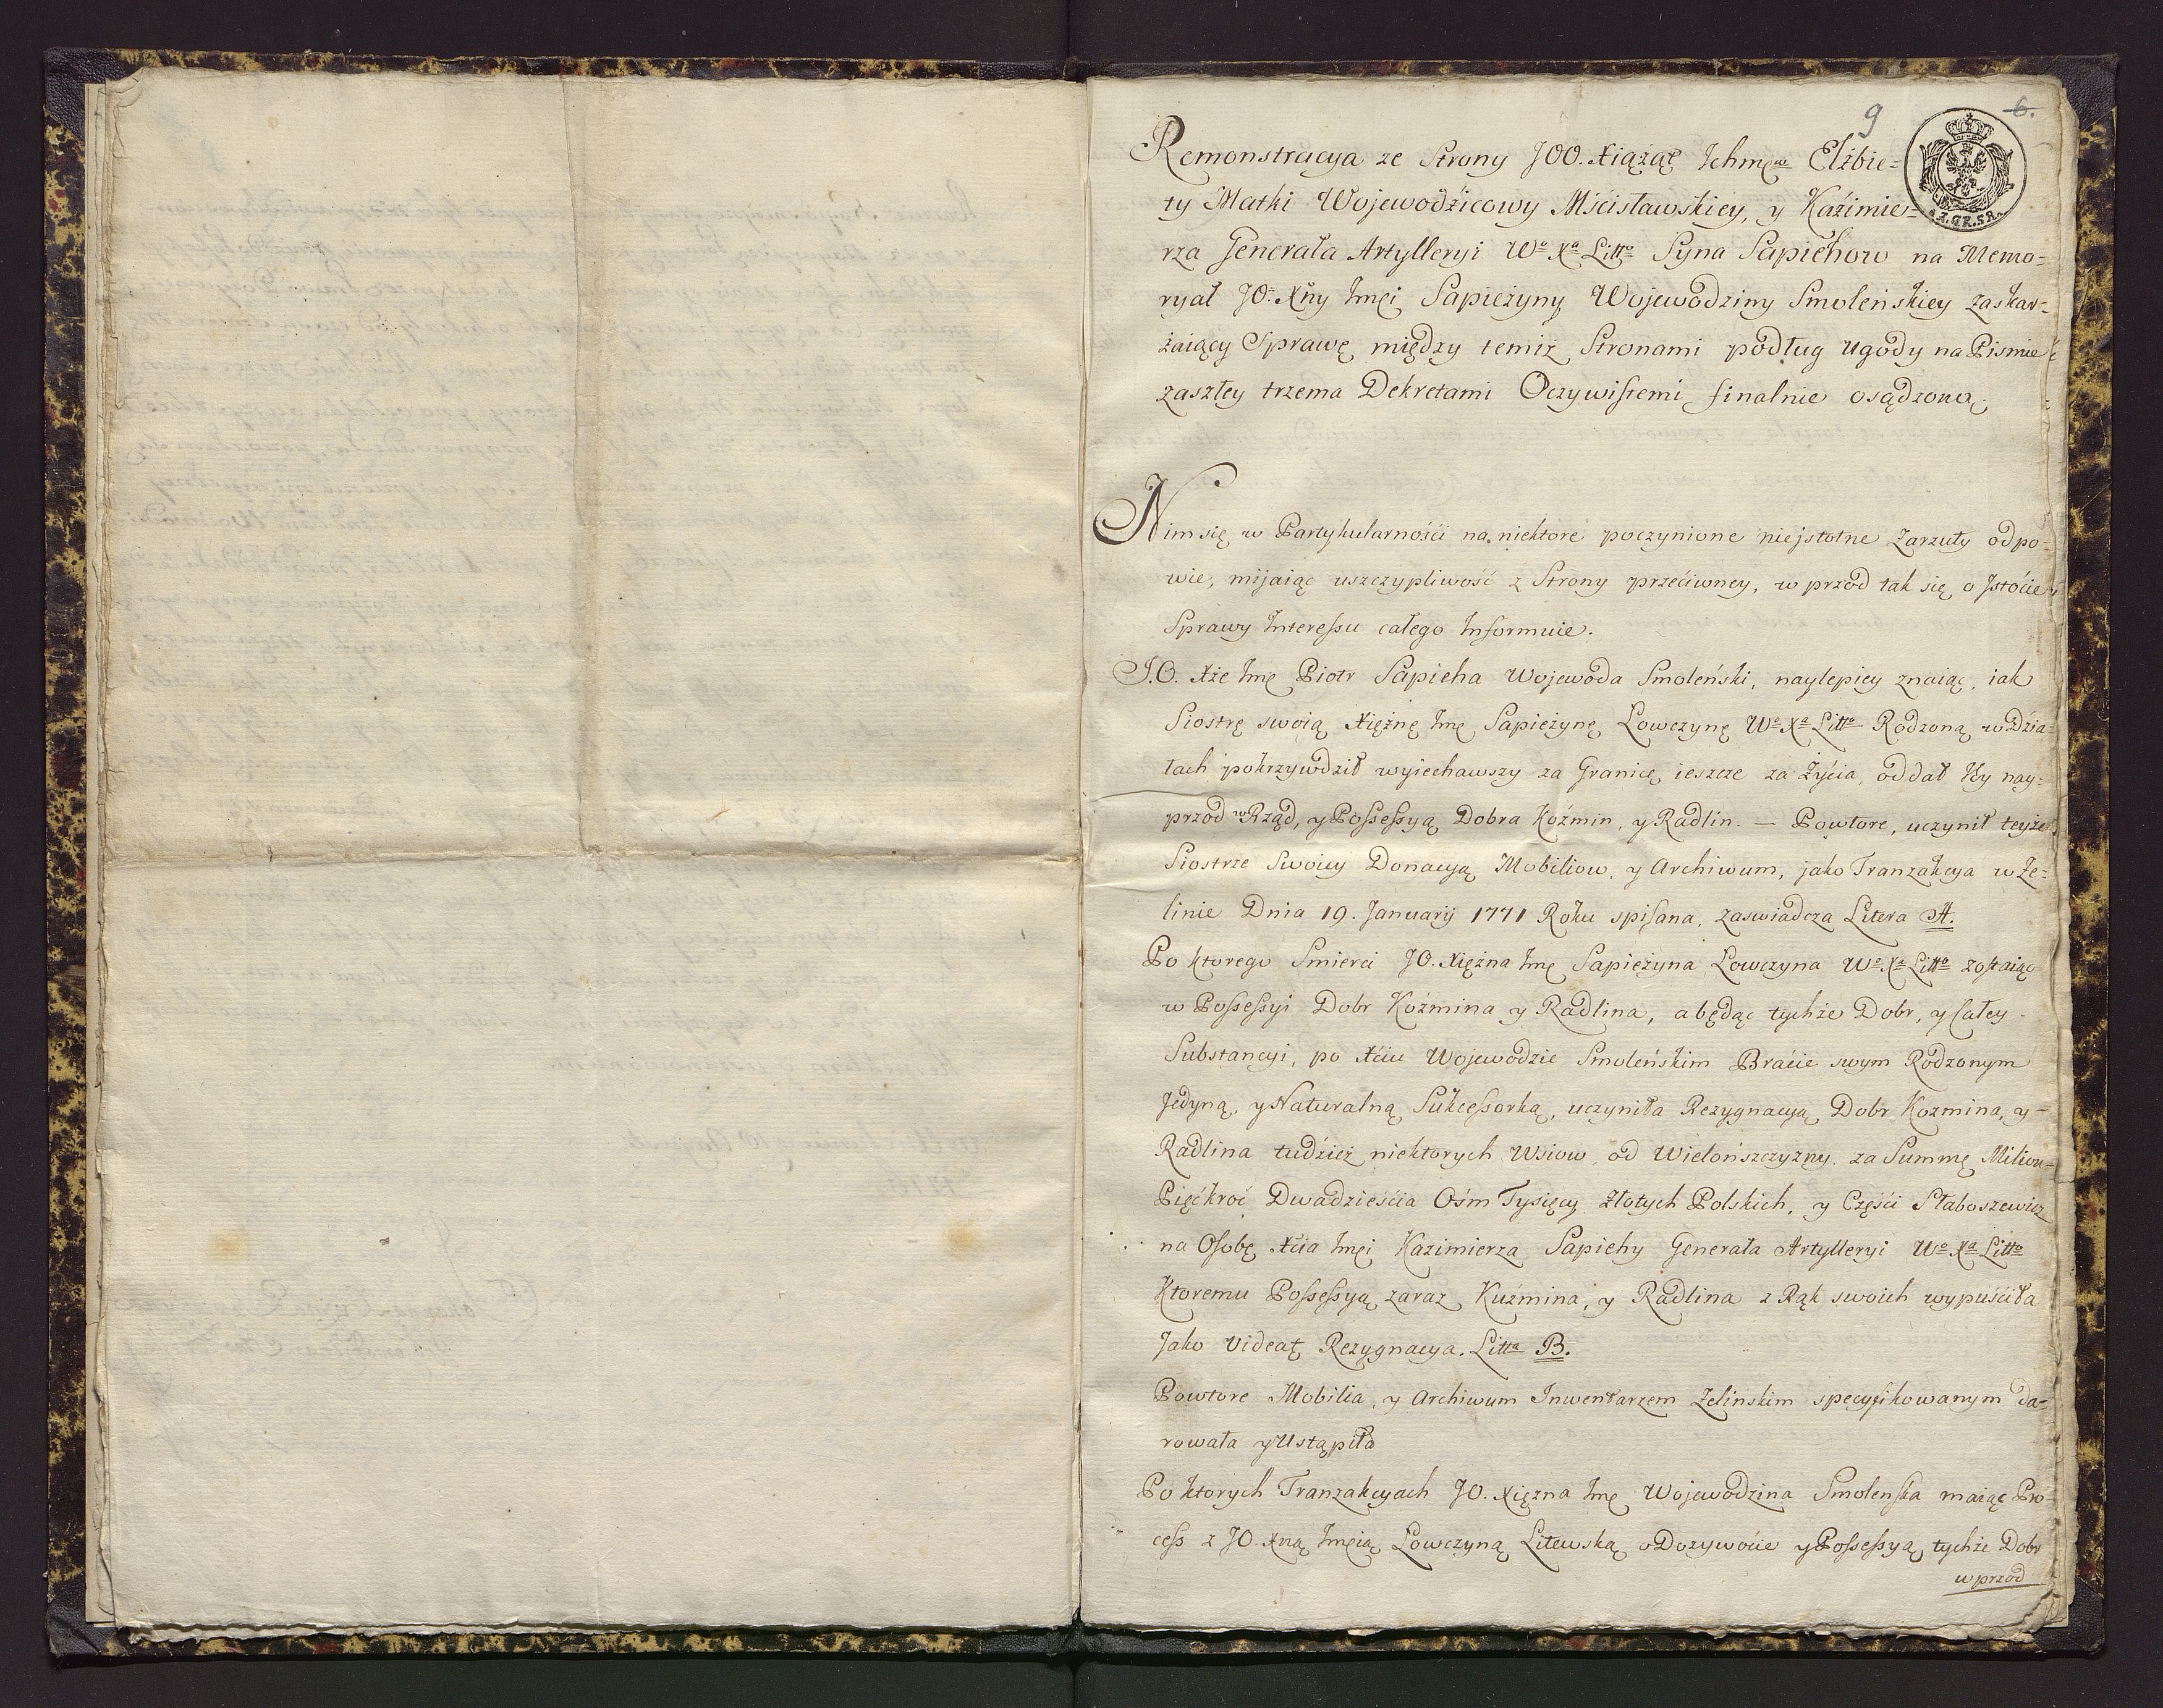 9 6.
Remonstracya ze Strony JOO. Xiążąt Ichmęw Elżbie=
ty Matki Wojewodźicowy Mśćisławskiey, y Kaźimie=
rza Generała Artylleryi Wo Xa Litto Syna Sapiehow na Memo=
ryał JO: Xny Jmći Sapieżyny Wojewodziny Smoleńskiey zaskar=
żaiący Sprawę między temiż Stronami podług ugody na Pismie
zaszłey trzema Dekretami Oczywistemi finalnie osądzoną.
Nim się w Partykularnośći na niektore poczynione nieistotne Zarzuty odpo=
wie, mijaiąc uszczypliwość z Strony przećiwney, w przod tak się o Jstoćie
Sprawy Interessu całego Informuie.
J.O. Xże Jmć Piotr Sapieha Wojewoda Smoleński, naylepiey znaiąc, iak
Siostrę swoią Xiężnę Jmć Sapieżynę Łowczynę Wo Xa Litto Rodzoną w Dzia=
łach pokrzywdził wyiechawszy za Granicę ieszcze za Żyćia, oddał Jey nay=
przod w Rząd, y Possessyą Dobra Koźmin, y Radlin. — Powtore, uczynił teyże
Siostrze Swoiey Donacyą Mobiliow, y Archiwum, jako Tranzakcya w Ze=
linie Dnia 19. Januarij 1771 Roku spisana, zaswiadcza Litera A.
Po ktorego Smierci JO. Xiężna Jmć Sapieżyna Łowczyna Wo Xa Litto zostaiąc
w Possessyi Dobr Koźmina y Radlina, a będąc tychże Dobr, y Całey
Substancyi, po Xćiu Wojewodzie Smoleńskim Braćie swym Rodzonym
Jedyną, y Naturalną Sukcessorką, uczyniła Rezygnacyą Dobr Kozmina, y
Radlina tudźież niektorych Wsiow od Wielońszczyzny. za Summę Milion
Pięćkroć Dwadzieśćia Ośm Tysięcy Złotych Polskich, y Częśći Słaboszewicz
na Osobę Xćia Jmći Kazimierza Sapiehy Generała Artylleryi Wo Xa Litto
Ktoremu Possessyą zaraz Kuźmina, y Radlina z Rąk swoich wypuśćiła
Jako Videat Rezygnacya. Litta B.
Powtore Mobilia, y Archiwum Inwentarzem Zelinskim specyfikowanym da=
rowała y Ustąpiła
Po ktorych Tranzakcyach JO. Xięzna Jmć Wojewodzina Smolenska maiąc Pro
cess z JO. Xną Jmćią Łowczyną Litewską o Dozywoćie y Possessyą tychże Dobr
w przod